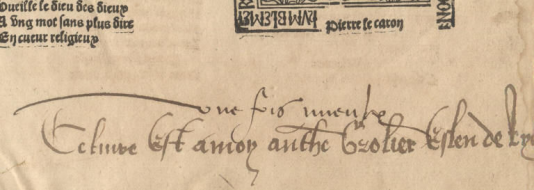 ueille le dieu des dieux
A vng mot sans plus dire
En cueur religieux
Pierre le caron
vne fois mieulx
Ce liure Est amoy anthe Grolier Esleu de